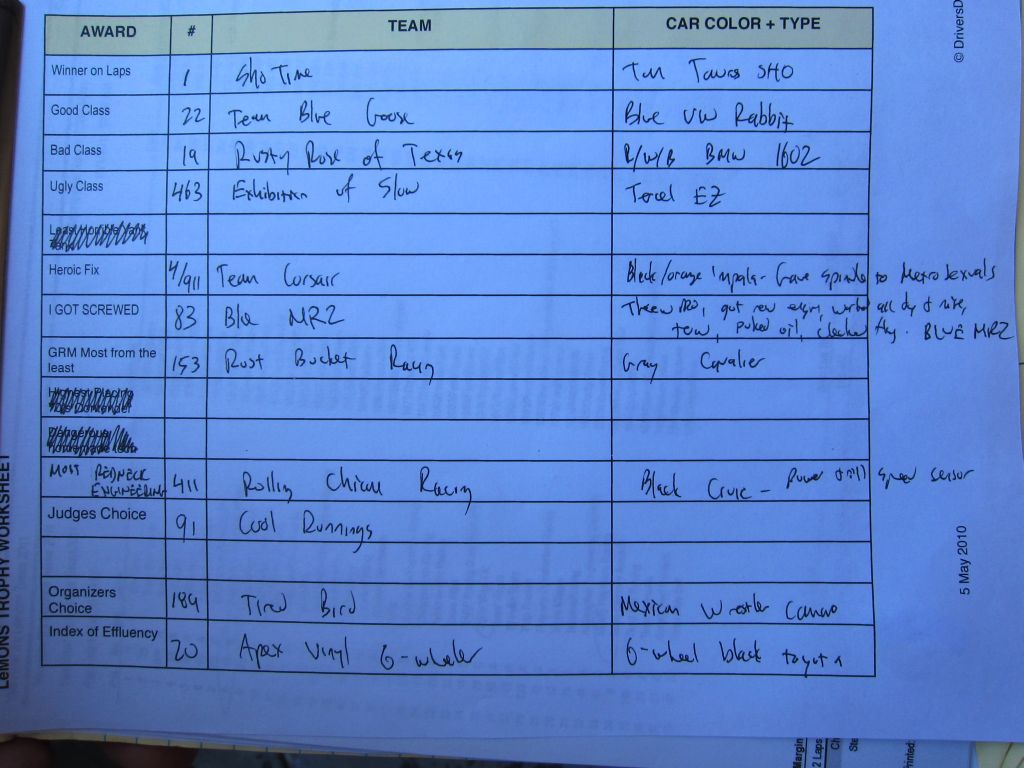 AWARD # TEAM CAR COLOR + TYPE
Winner on Laps 1 Sho Time Tan Taurus SHO
Good Class 22 Team Blue Goose Blue VW Rabbit
Bad Class 19 Rusty Rose of Texas R/W/B BMW 1602
Ugly Class 463 Exhibition of Slow Tercel EZ
Heroic Fix 4/911 Team Corsair Black/orange Impala - Gave spindle to Metrosexuals
I GOT SCREWED 83 Blue MR2 Threw rod, got new engine, worked all day & nite,
tow, puked oil, black flag. BLUE MR2
GRM Most from the
least 153 Rust Bucket Racing Gray Cavalier
MOST REDNECK
ENGINEERING 411 Rolling Chicane Racing Black Civic - power speed sensor
Judges Choice 91 Cool Runnings
Organizers
Choice 189 Tired Bird Mexican Wrestler Camaro
Index of Effluency 20 Apex Vinyl 6-wheeler 6-wheel black toyota
LeMONS TROPHY WORKSHEET
© DriversD
5 May 2010
Margin
2 Laps
Ch
Sta
Printed: